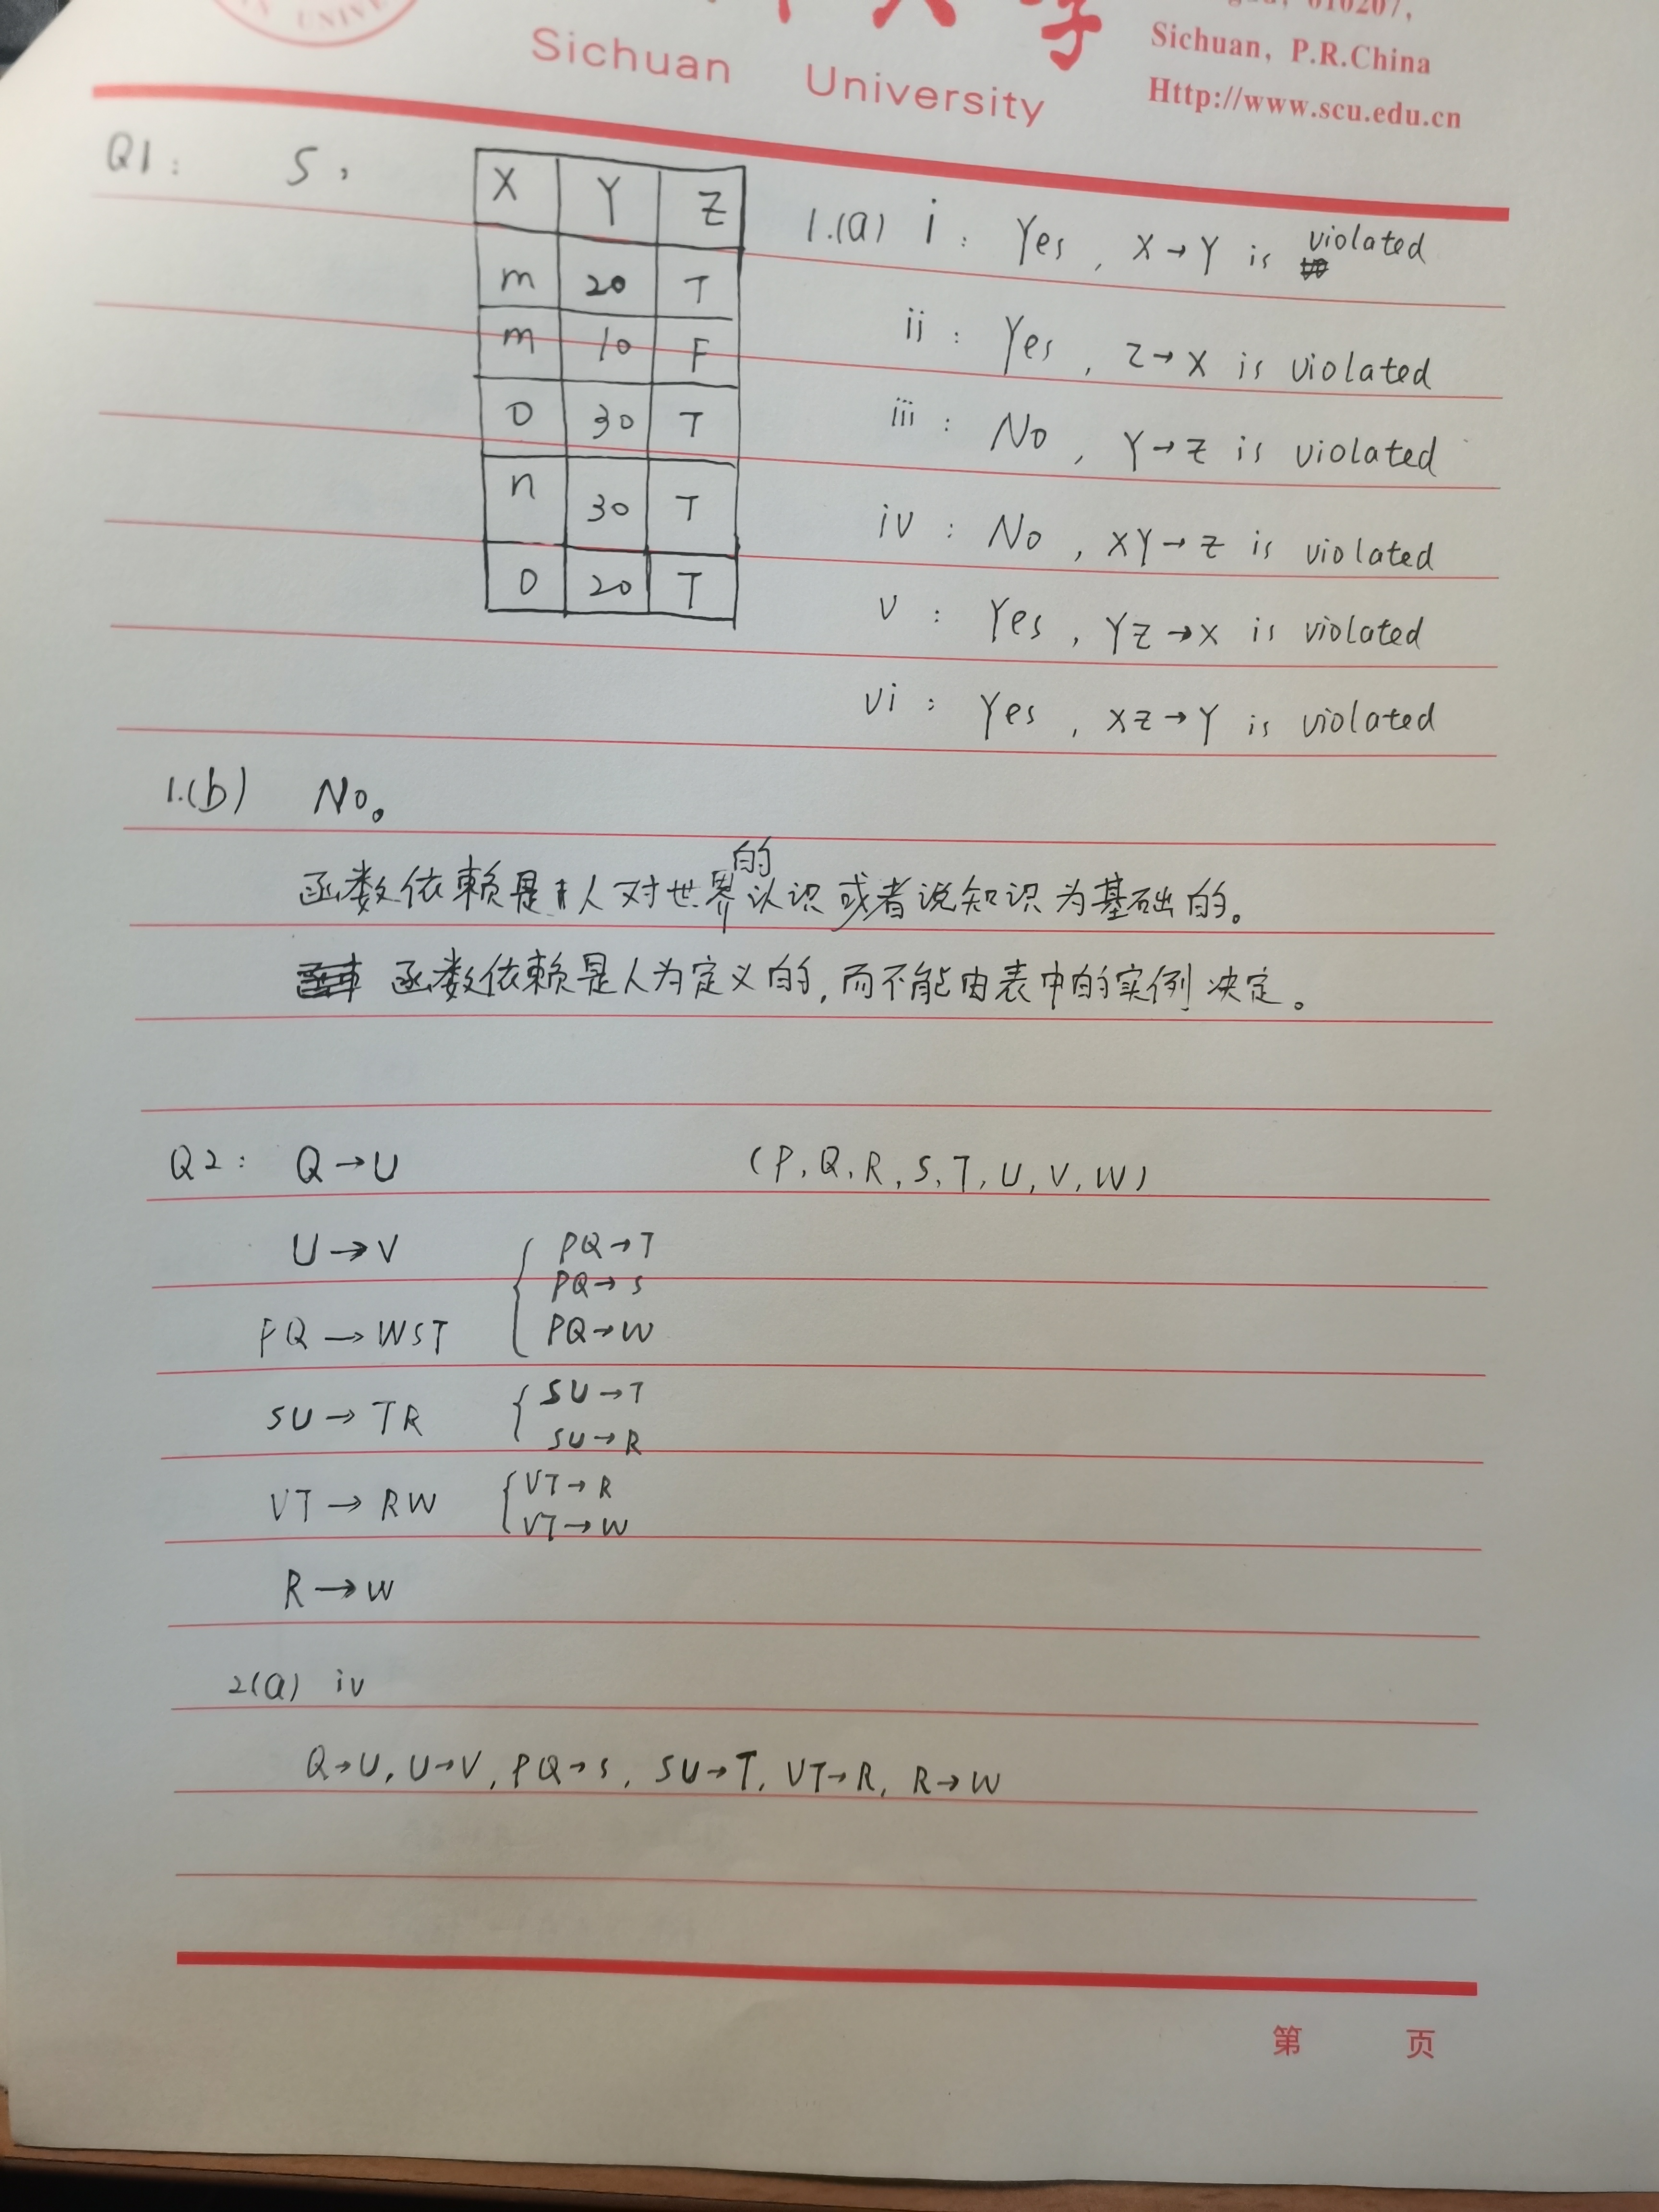 UNIVE
大学
Sichuan University
610207,
Sichuan, P.R.China
Http://www.scu.edu.cn
Q1: S,
X Y Z
m 20 T
m 10 F
O 30 T
n 30 T
O 20 T
1.(a) i: Yes, X→Y is violated
ii: Yes, Z→X is violated
iii: No, Y→Z is violated
iv: No, XY→Z is violated
v: Yes, YZ→X is violated
vi: Yes, XZ→Y is violated
1.(b) No。
函数依赖是人对世界的认识或者说知识为基础的。
函数依赖是人为定义的,而不能由表中的实例决定。
Q2: Q→U (P, Q, R, S, T, U, V, W)
U→V
PQ→WST { PQ→T
PQ→S
PQ→W
SU→TR { SU→T
SU→R
VT→RW { VT→R
VT→W
R→W
2(a) iv
Q→U, U→V, PQ→S, SU→T, VT→R, R→W
第 页